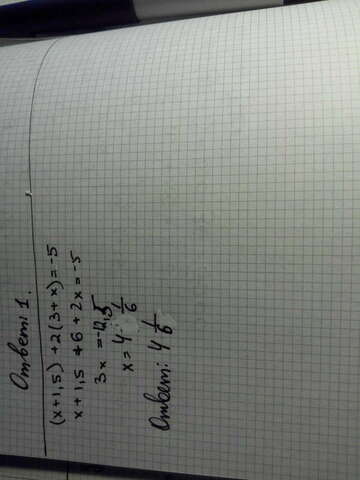 Ответ: 1.
(x+1,5)+2(3+x)=-5
x+1,5+6+2x=-5
3x=-12,5
x=4 1/6
Ответ: 4 1/6